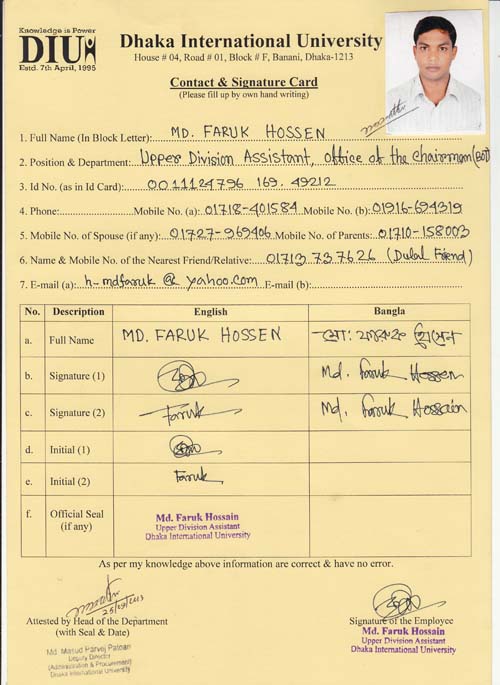 Knowledge is Power
DIU
Estd. 7th April, 1995
Dhaka International University
House # 04, Road # 01, Block # F, Banani, Dhaka-1213
Contact & Signature Card
(Please fill up by own hand writing)
1. Full Name (In Block Letter): MD. FARUK HOSSEN
2. Position & Department: Upper Division Assistant, office of the chairman (BOT)
3. Id No. (as in Id Card): 0011124796 169. 49212
4. Phone: Mobile No. (a): 01718-401584 Mobile No. (b): 01916-694319
5. Mobile No. of Spouse (if any): 01727-969406 Mobile No. of Parents: 01710-158003
6. Name & Mobile No. of the Nearest Friend/Relative: 01713 737626 (Dulal Friend)
7. E-mail (a): h-mdfaruk @ yahoo.com E-mail (b):
No. Description English Bangla
a. Full Name MD. FARUK HOSSEN মো: ফারুক হোসেন
b. Signature (1) Md. Faruk Hossen
c. Signature (2) Faruk Md. Faruk Hossain
d. Initial (1)
e. Initial (2) Faruk
f. Official Seal (if any) Md. Faruk Hossain
Upper Division Assistant
Dhaka International University
As per my knowledge above information are correct & have no error.
Attested by Head of the Department
(with Seal & Date)
Md. Masud Parvej Patoari
Deputy Director
(Administration & Procurement)
Dhaka International University
Signature of the Employee
Md. Faruk Hossain
Upper Division Assistant
Dhaka International University